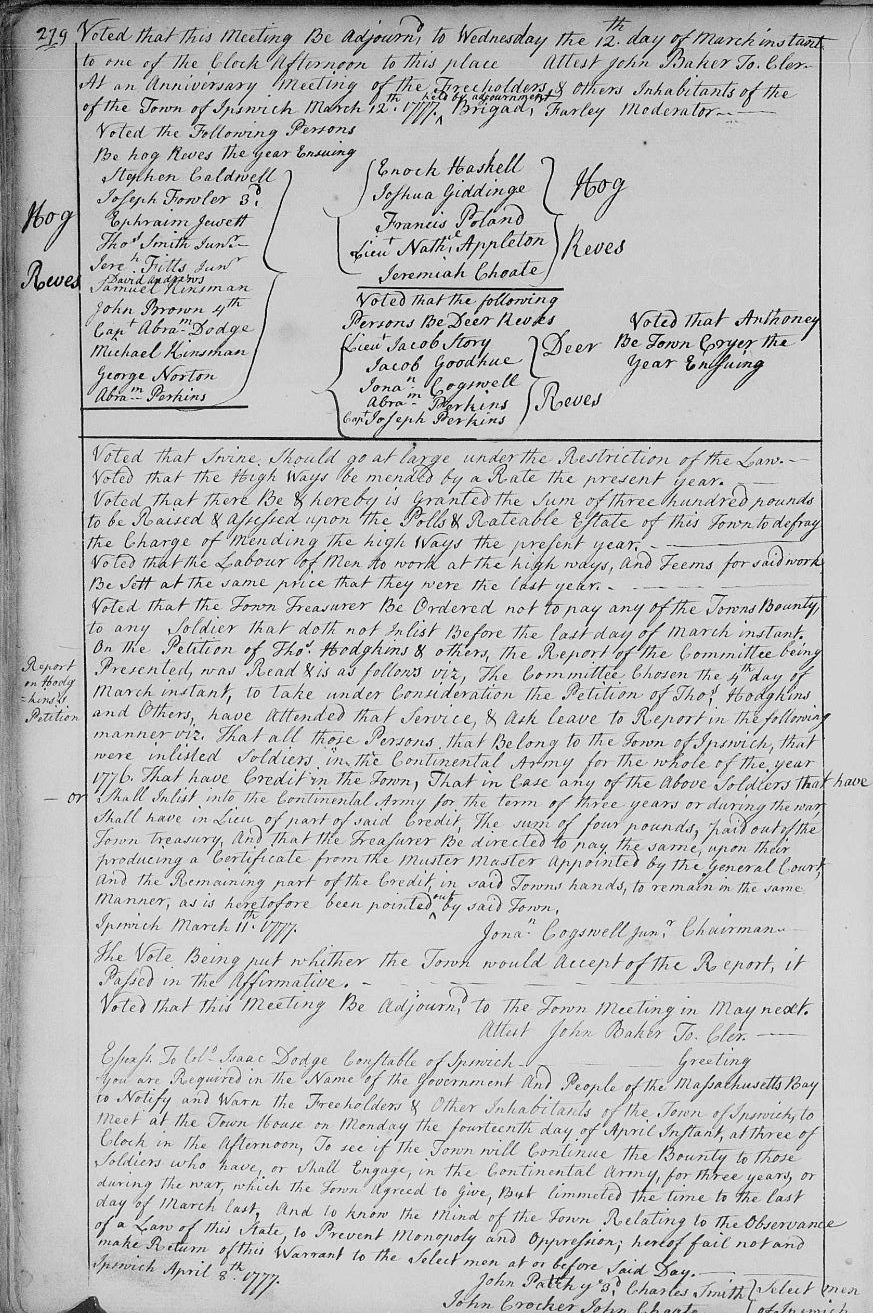 279 Voted that this Meeting Be Adjourn,d to Wednesday the 12.th day of March instant
to one of the Clock Afternoon to this place Attest John Baker To. Cler.
At an Anniversary Meeting of the Freeholders & others Inhabitants of the
of the Town of Ipswich March 12th. 1777. held by adjournment Brigad,r Farley Moderator
Voted the Following Persons
Be hog Reves the year Ensuing
Hog
Reves
Stephen Caldwell
Joseph Fowler 3.d
Ephraim Jewett
Thos Smith Junr
Jere.h Fitts Junr
David Andrews
Samuel Kinsman
John Brown 4th
Capt Abra.m Dodge
Michael Kinsman
George Norton
Abra.m Perkins
Enoch Haskell
Joshua Giddinge
Francis Poland
Lieut Nath.l Appleton
Jeremiah Choate
Hog
Reves
Voted that the following
Persons Be Deer Reves
Lieut Jacob Story
Jacob Goodhue
Jona.n Cogswell
Abra.m Perkins
Capt Joseph Perkins
Deer
Reves
Voted that Anthoney
Be Town Cryer the
Year Ensuing
Voted that Swine Should go at large under the Restriction of the Law.
Voted that the High Ways be mended by a Rate the present year.
Voted that there Be & hereby is Granted the Sum of three hundred pounds
to be Raised & Assessed upon the Polls & Rateable Estate of this Town to defray
the Charge of mending the high Ways the present year.
Voted that the Labour of Men to work at the high ways, And Teems for said work
Be Sett at the same price that they were the last year.
Voted that the Town Treasurer Be Ordered not to pay any of the Towns Bounty,
to any Soldier that doth not Inlist Before the last day of March instant.
Report
on Hodg
-kins's
Petition
On the Petition of Thos. Hodgkins & others, the Report of the Committee being
Presented, was Read & is as follows viz, The Committee Chosen the 4th day of
March instant, to take under Consideration the Petition of Thos. Hodgkins
and Others, have Attended that Service, & Ask leave to Report in the following
manner viz. That all those Persons that Belong to the Town of Ipswich, that
were inlisted Soldiers in the Continental Army for the whole of the year
1776. That have Credit in the Town, That in Case any of the Above Soldiers that have
- or Shall Inlist into the Continental Army for the term of three years or during the war,
Shall have in Lieu of part of said Credit, The sum of four pounds, paid out of the
Town treasury, And that the Treasurer Be directed to pay the same, upon their
producing a Certificate from the Muster Master Appointed by the General Court,
And the Remaining part of the Credit, in said Towns hands, to remain in the same
Manner, as is heretofore been pointed out by said Town.
Ipswich March 11th. 1777. Jona.n Cogswell Jun.r Chairman
The Vote Being put whether the Town would Accept of the Report, it
Passed in the Affirmative.
Voted that this Meeting Be Adjourn,d to the Town Meeting in May next.
Attest John Baker To. Cler.
Essex ss. To Col.o Isaac Dodge Constable of Ipswich Greeting
You are Required in the Name of the Government And People of the Massachusetts Bay
to Notify and Warn the Freeholders & Other Inhabitants of the Town of Ipswich, to
Meet at the Town House on Monday the fourteenth day of April Instant, at three of
Clock in the Afternoon, To see if the Town will Continue the Bounty to those
Soldiers who have, or Shall Engage, in the Continental Army, for three years, or
during the war, which the Town Agreed to Give, But limmeted the time to the last
day of March last, And to know the mind of the Town Relating to the Observance
of a Law of this State, to Prevent Monopoly and Oppression; hereof fail not and
make Return of this Warrant to the Select men at or before Said Day.
Ipswich April 8th. 1777.
John Patch ye 3d Charles Smith Select men
John Crocker John Choate of Ipswich